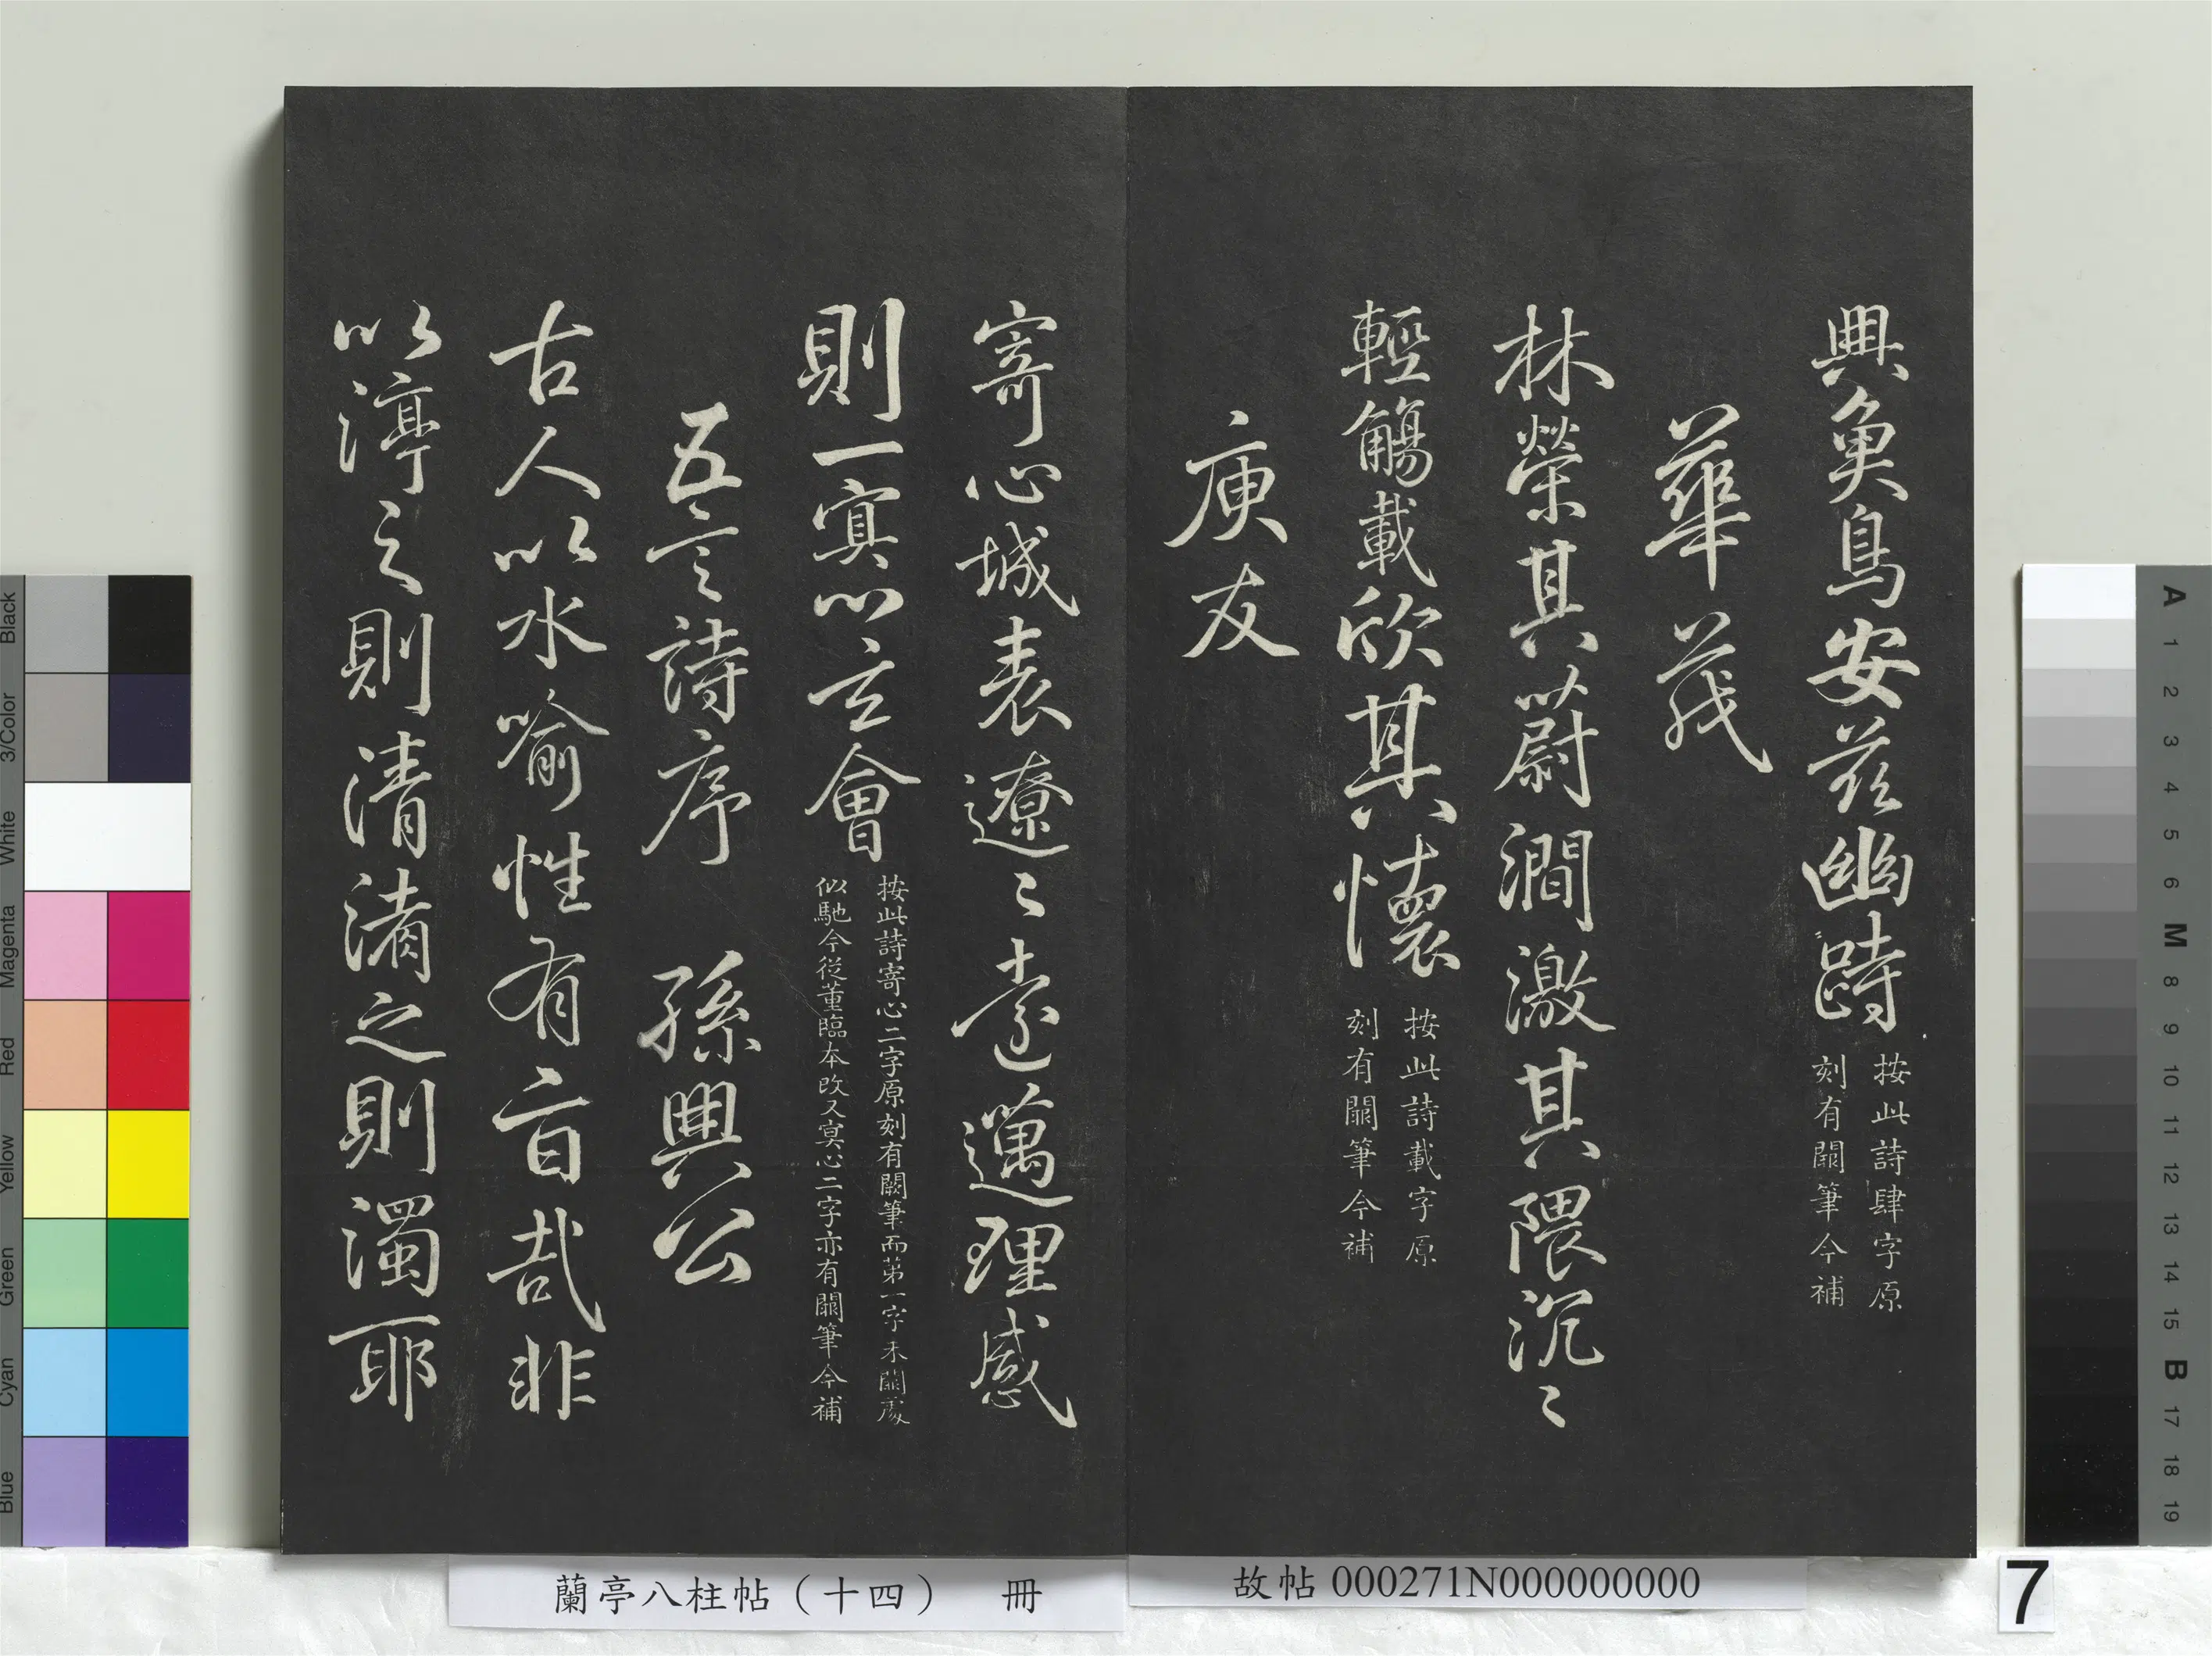 興魚鳥安茲幽跱
按此詩肆字原
刻有闕筆今補
華茂
林榮其蔚澗激其隈沉〻
輕觴載欣其懷
按此詩載字原
刻有闕筆今補
庾友
寄心域表遼〻遠邁理感
則一寞以玄會
按此詩寄心二字原刻有闕筆而第一字未闕處
似馳今從董臨本改又寞心二字亦有闕筆今補
五言詩序 孫興公
古人以水喻性有旨哉非
以渟之則清淆之則濁耶
蘭亭八柱帖（十四） 冊
故帖 000271N000000000
7
Black
3/Color
White
Magenta
Red
Yellow
Green
Cyan
Blue
A
1
2
3
4
5
6
M
8
9
10
11
12
13
14
15
B
17
18
19